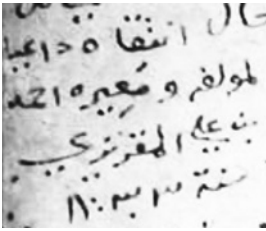 انتقاه داعيا
لمولفه ومعيره احمد
بن علي المقريزي
سنة